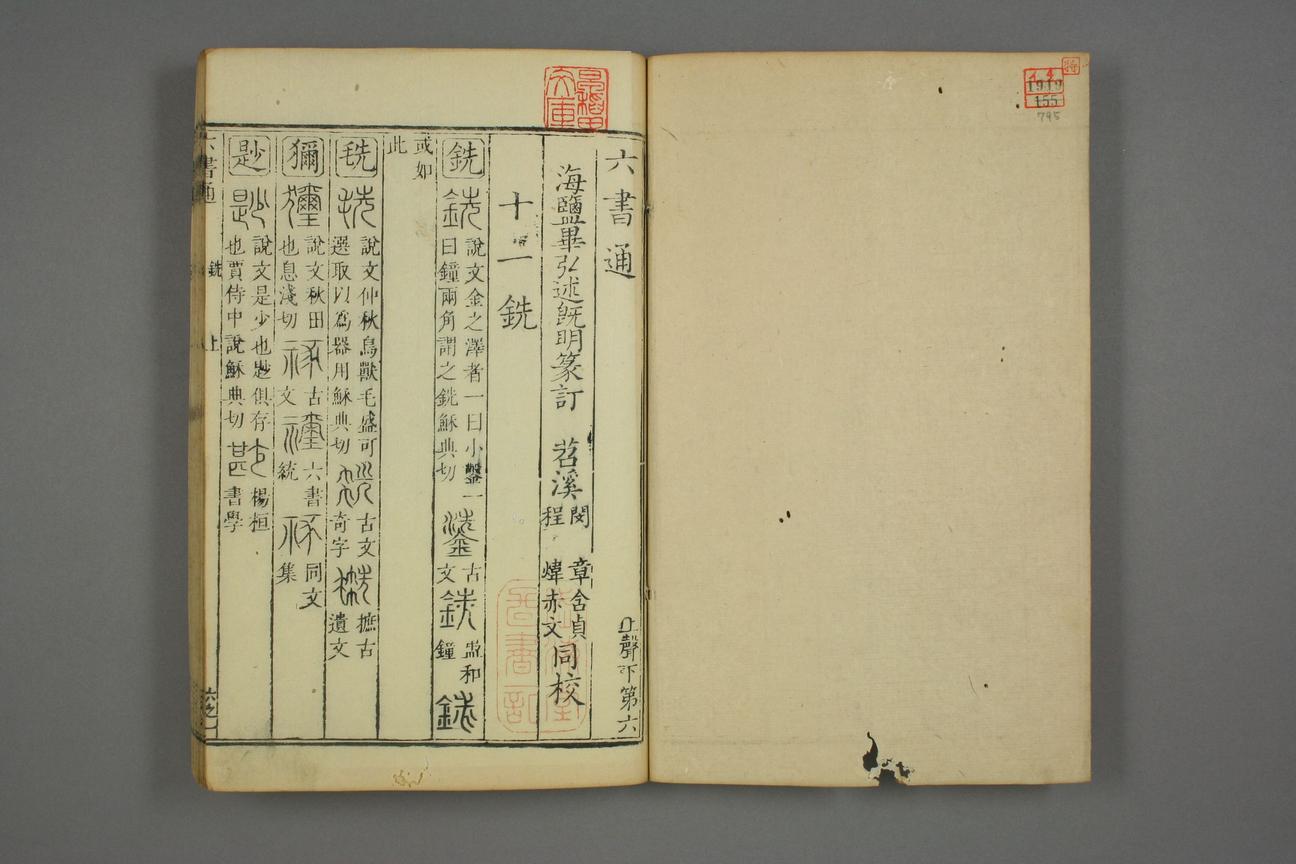 六書通
上聲下第六
海鹽畢弘述既明篆訂
苕溪
閔章含貞
程煒赤文
同校
十二銑
銑
說文金之澤者一曰小鑿一
曰鐘兩角謂之銑穌典切
古
文
盄和
鐘
或如
此
毨
說文仲秋鳥獸毛盛可
選取以為器用穌典切
古文
奇字
摭古
遺文
獮
說文秋田
也息淺切
古
文
六書
統
同文
集
尟
說文是少也尟俱存
也賈侍中說穌典切
楊桓
書學
六書通
銑
上
六之一
1919
155
795
特